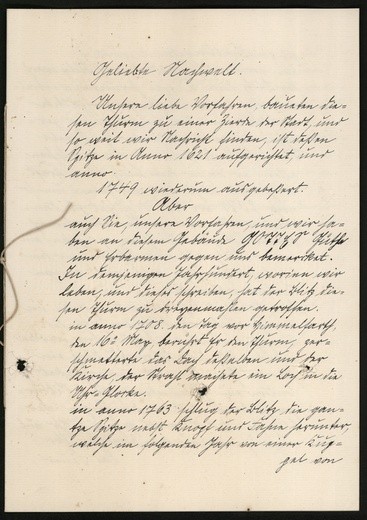 Geliebte Nachwelt.
Unsere liebe Vorfahren, baueten die-
sen Thurm zu einer Zierde der Stadt, und
so weit wir Nachricht finden, ist deßen
Spitze in Anno 1621 aufgerichtet, und
anno
1749 wiederum ausgebeßert.
Aber
auch Sie, unsere Vorfahren, und wir ha-
ben an diesem Gebäude GOTTES Güthe
und Erbarmen gegen uns bemerket.
In demjenigen Jahrhundert, worinn wir
leben, und dieses schreiben, hat der Blitz die-
sen Thurm zu dreyenmahlen getroffen.
in anno 1708. den Tag vor Himmelfarth,
den 16. May berührt Er den Thurm, zer-
schmetterte das Dach desselben und der
Kirche, der Strahl machete ein Loch in die
Uhr-Glocke.
in anno 1763 schlug der Blitz die gan-
tze Spitze nebst Knopf und Fahne herunter,
welche im folgenden Jahr von einer Kup-
pel von